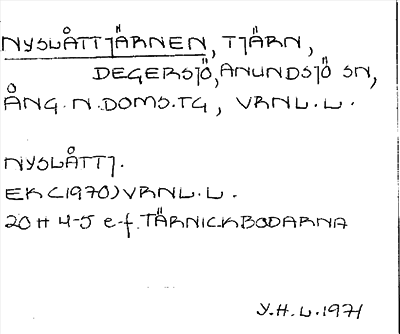 NYSLÅTTJÄRNEN, TJÄRN,
DEGERSJÖ, ANUNDSJÖ SN,
ÅNG. N. DOMS. TG, VRNL. L.
NYSLÅTTJ.
EK (1970) VRNL. L.
20 H 4-5 e-f. TÄRNICKBODARNA
Y.H.L. 1971